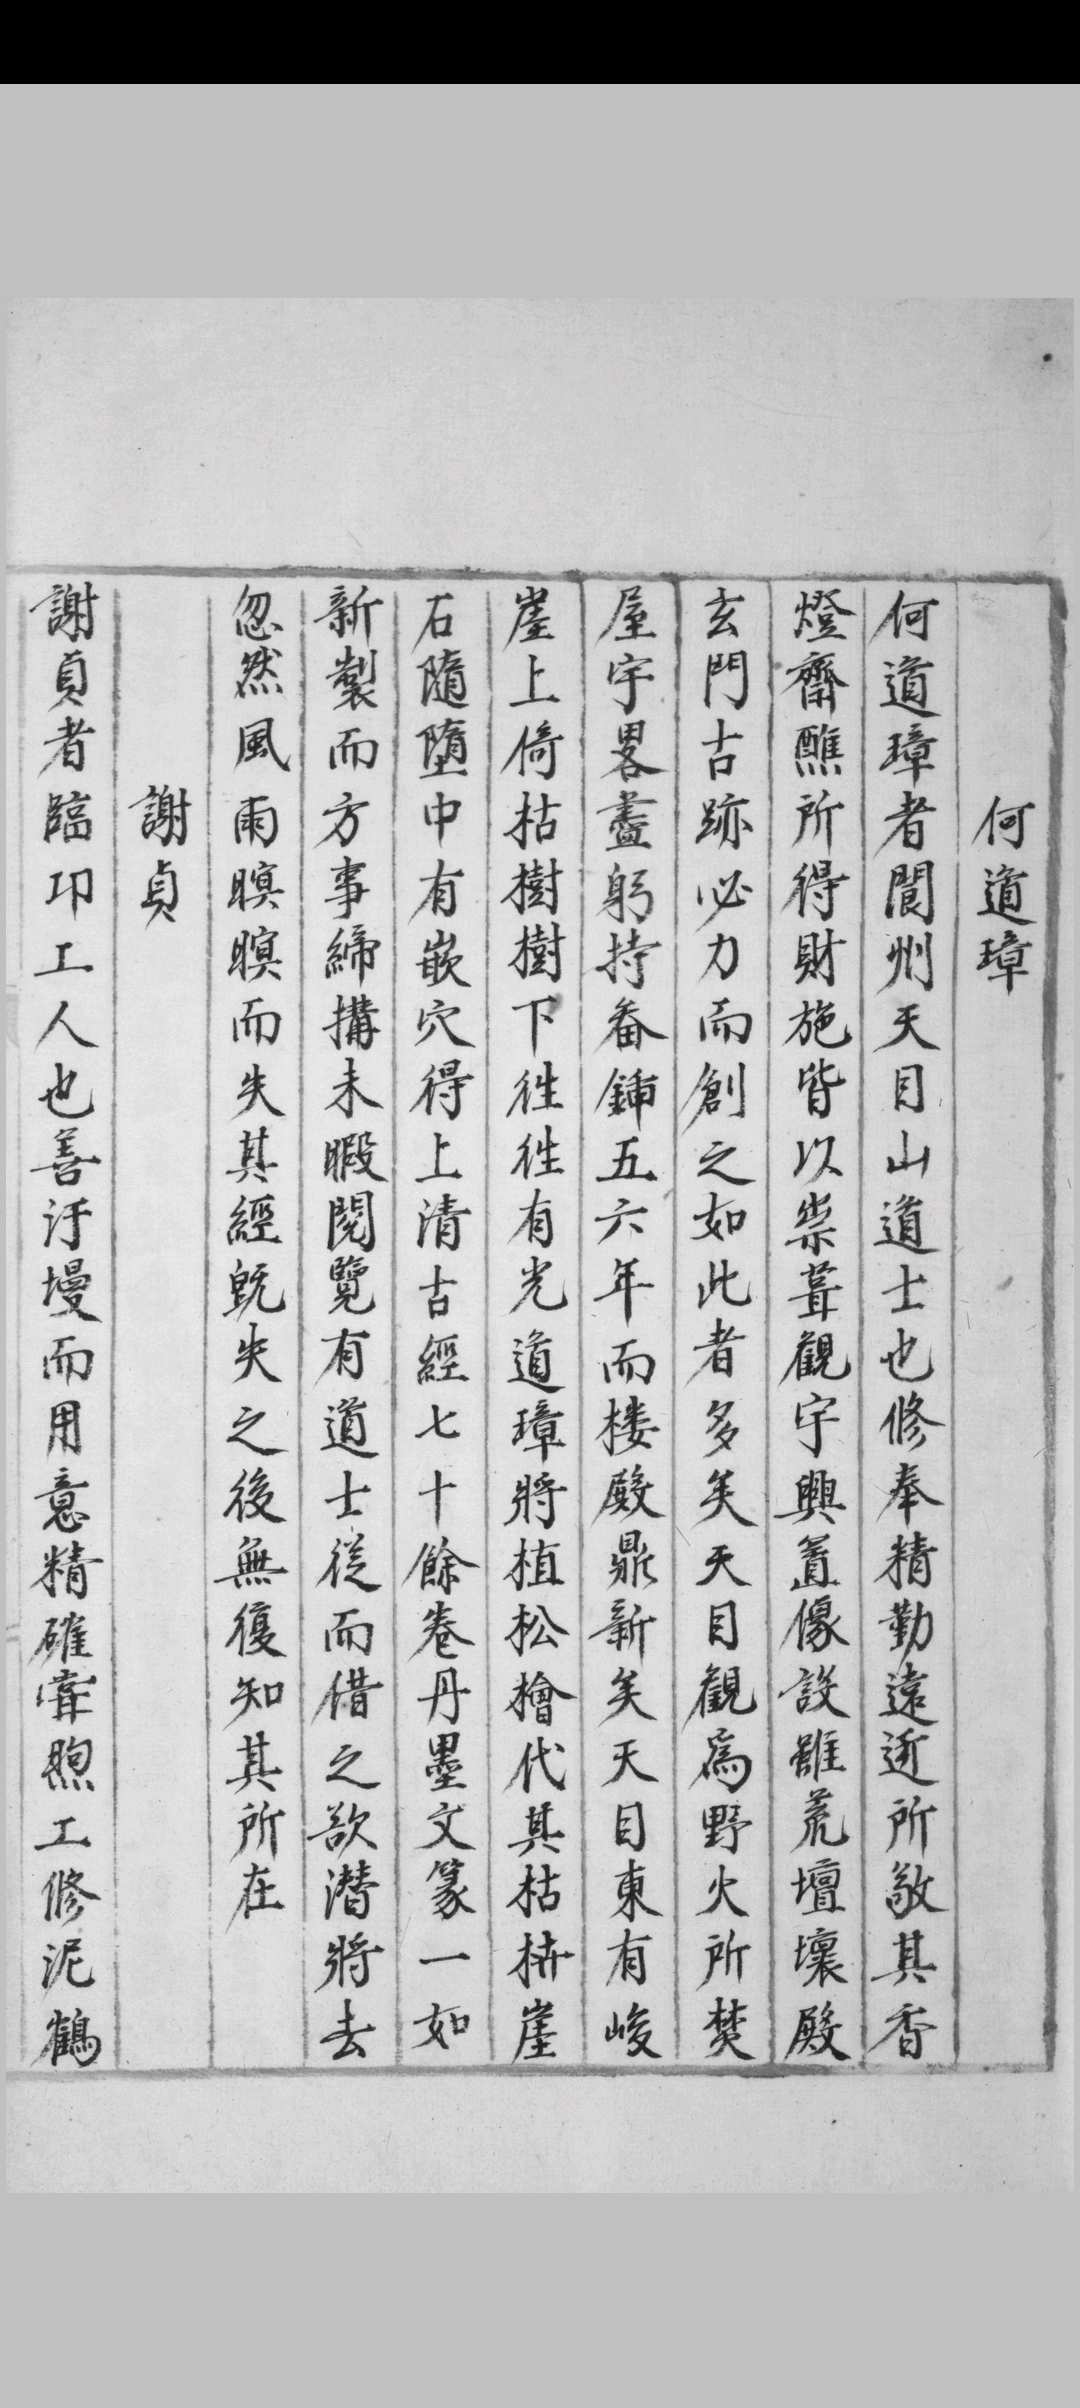 何道璋
何道璋者閬州天目山道士也修奉精勤遠近所敬其香
燈齋醮所得財施皆以崇葺觀宇興置像設雖荒壇壞殿
玄門古跡必力而創之如此者多矣天目觀為野火所焚
屋宇畧盡躬持畚鍤五六年而樓殿鼎新矣天目東有峻
崖上倚枯樹樹下徃徃有光道璋將植松檜代其枯枿崖
石隨墮中有嵌穴得上清古經七十餘卷丹墨文篆一如
新製而方事締搆未暇閱覽有道士從而借之欲潜將去
忽然風雨暝暝而失其經旣失之後無復知其所在
謝貞
謝貞者臨邛工人也善汙墁而用意精確當興工修泥鶴